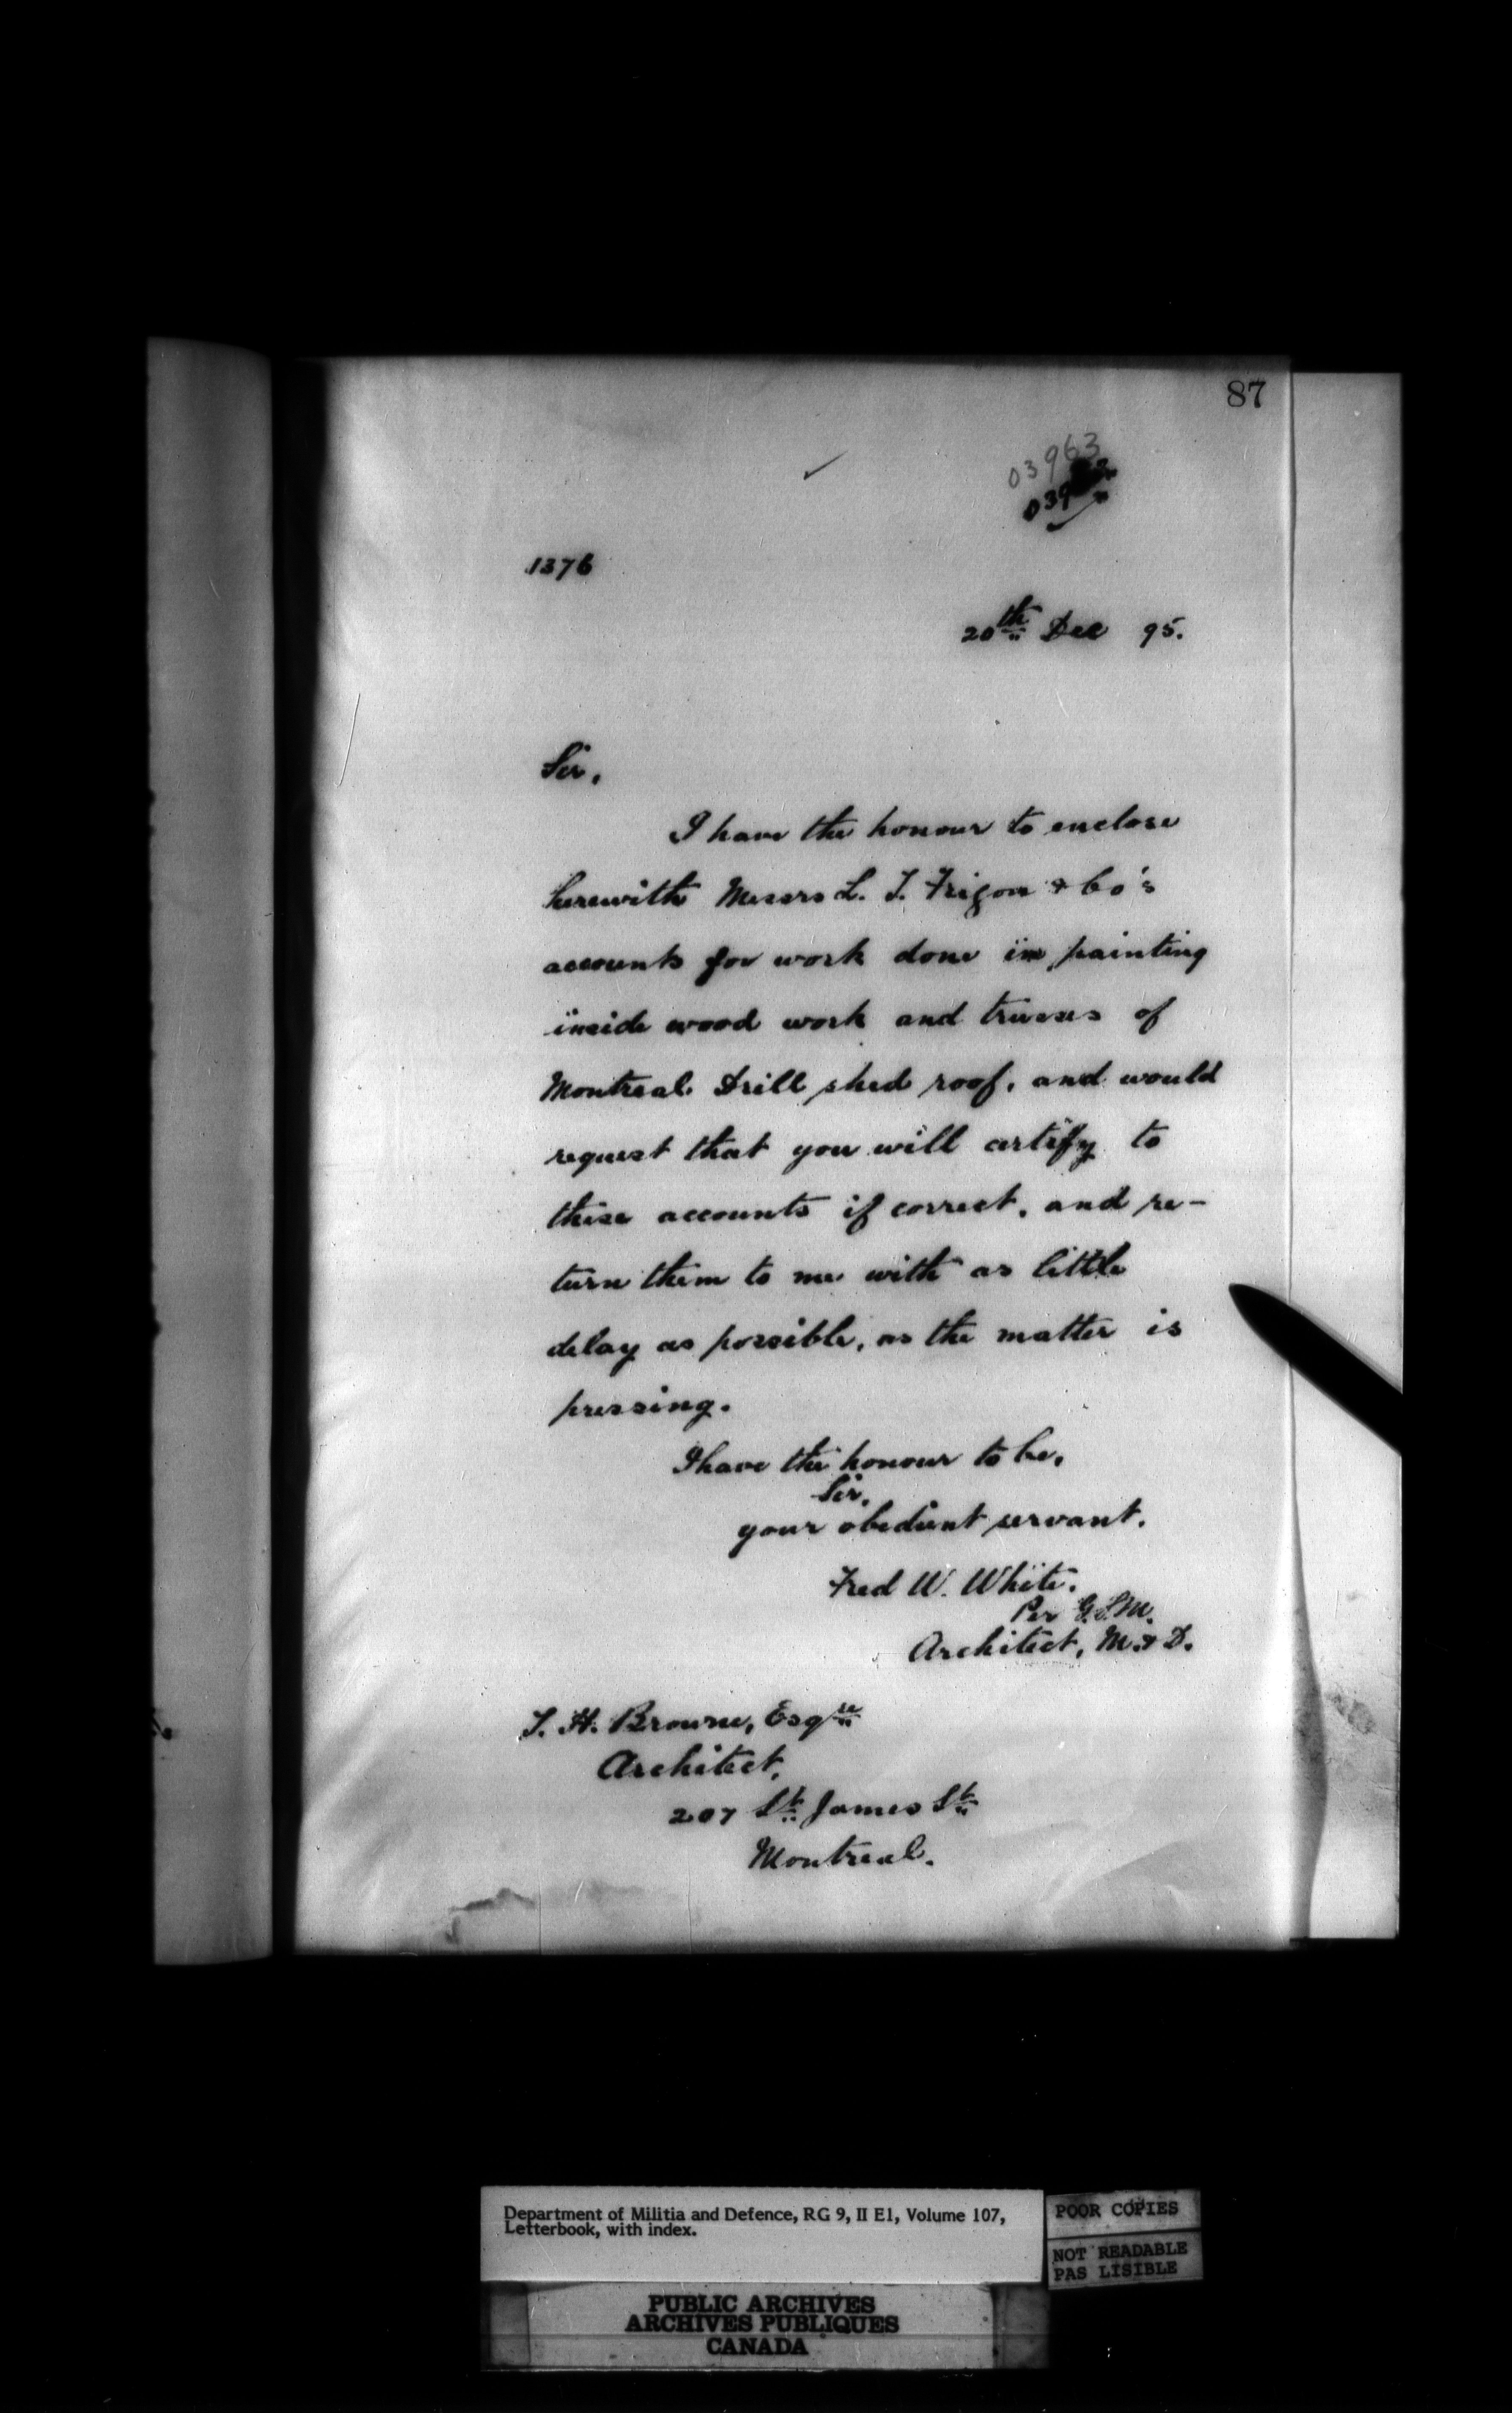 87
03963
039
1376
20th Dec 95.
Sir,
I have the honour to enclose
herewith Messrs L. T. Trigon & Co's
accounts for work done in painting
inside wood work and trusses of
Montreal Drill shed roof, and would
request that you will certify to
these accounts if correct, and re-
turn them to me with as little
delay as possible, as the matter is
pressing.
I have the honour to be,
Sir,
your obedient servant.
Fred W. White.
Per G.S.M.
Architect, M. & D.
T. H. Browne, Esqre
Architect,
207 St James St
Montreal.
Department of Militia and Defence, RG 9, II E1, Volume 107,
Letterbook, with index.
POOR COPIES
NOT READABLE
PAS LISIBLE
PUBLIC ARCHIVES
ARCHIVES PUBLIQUES
CANADA